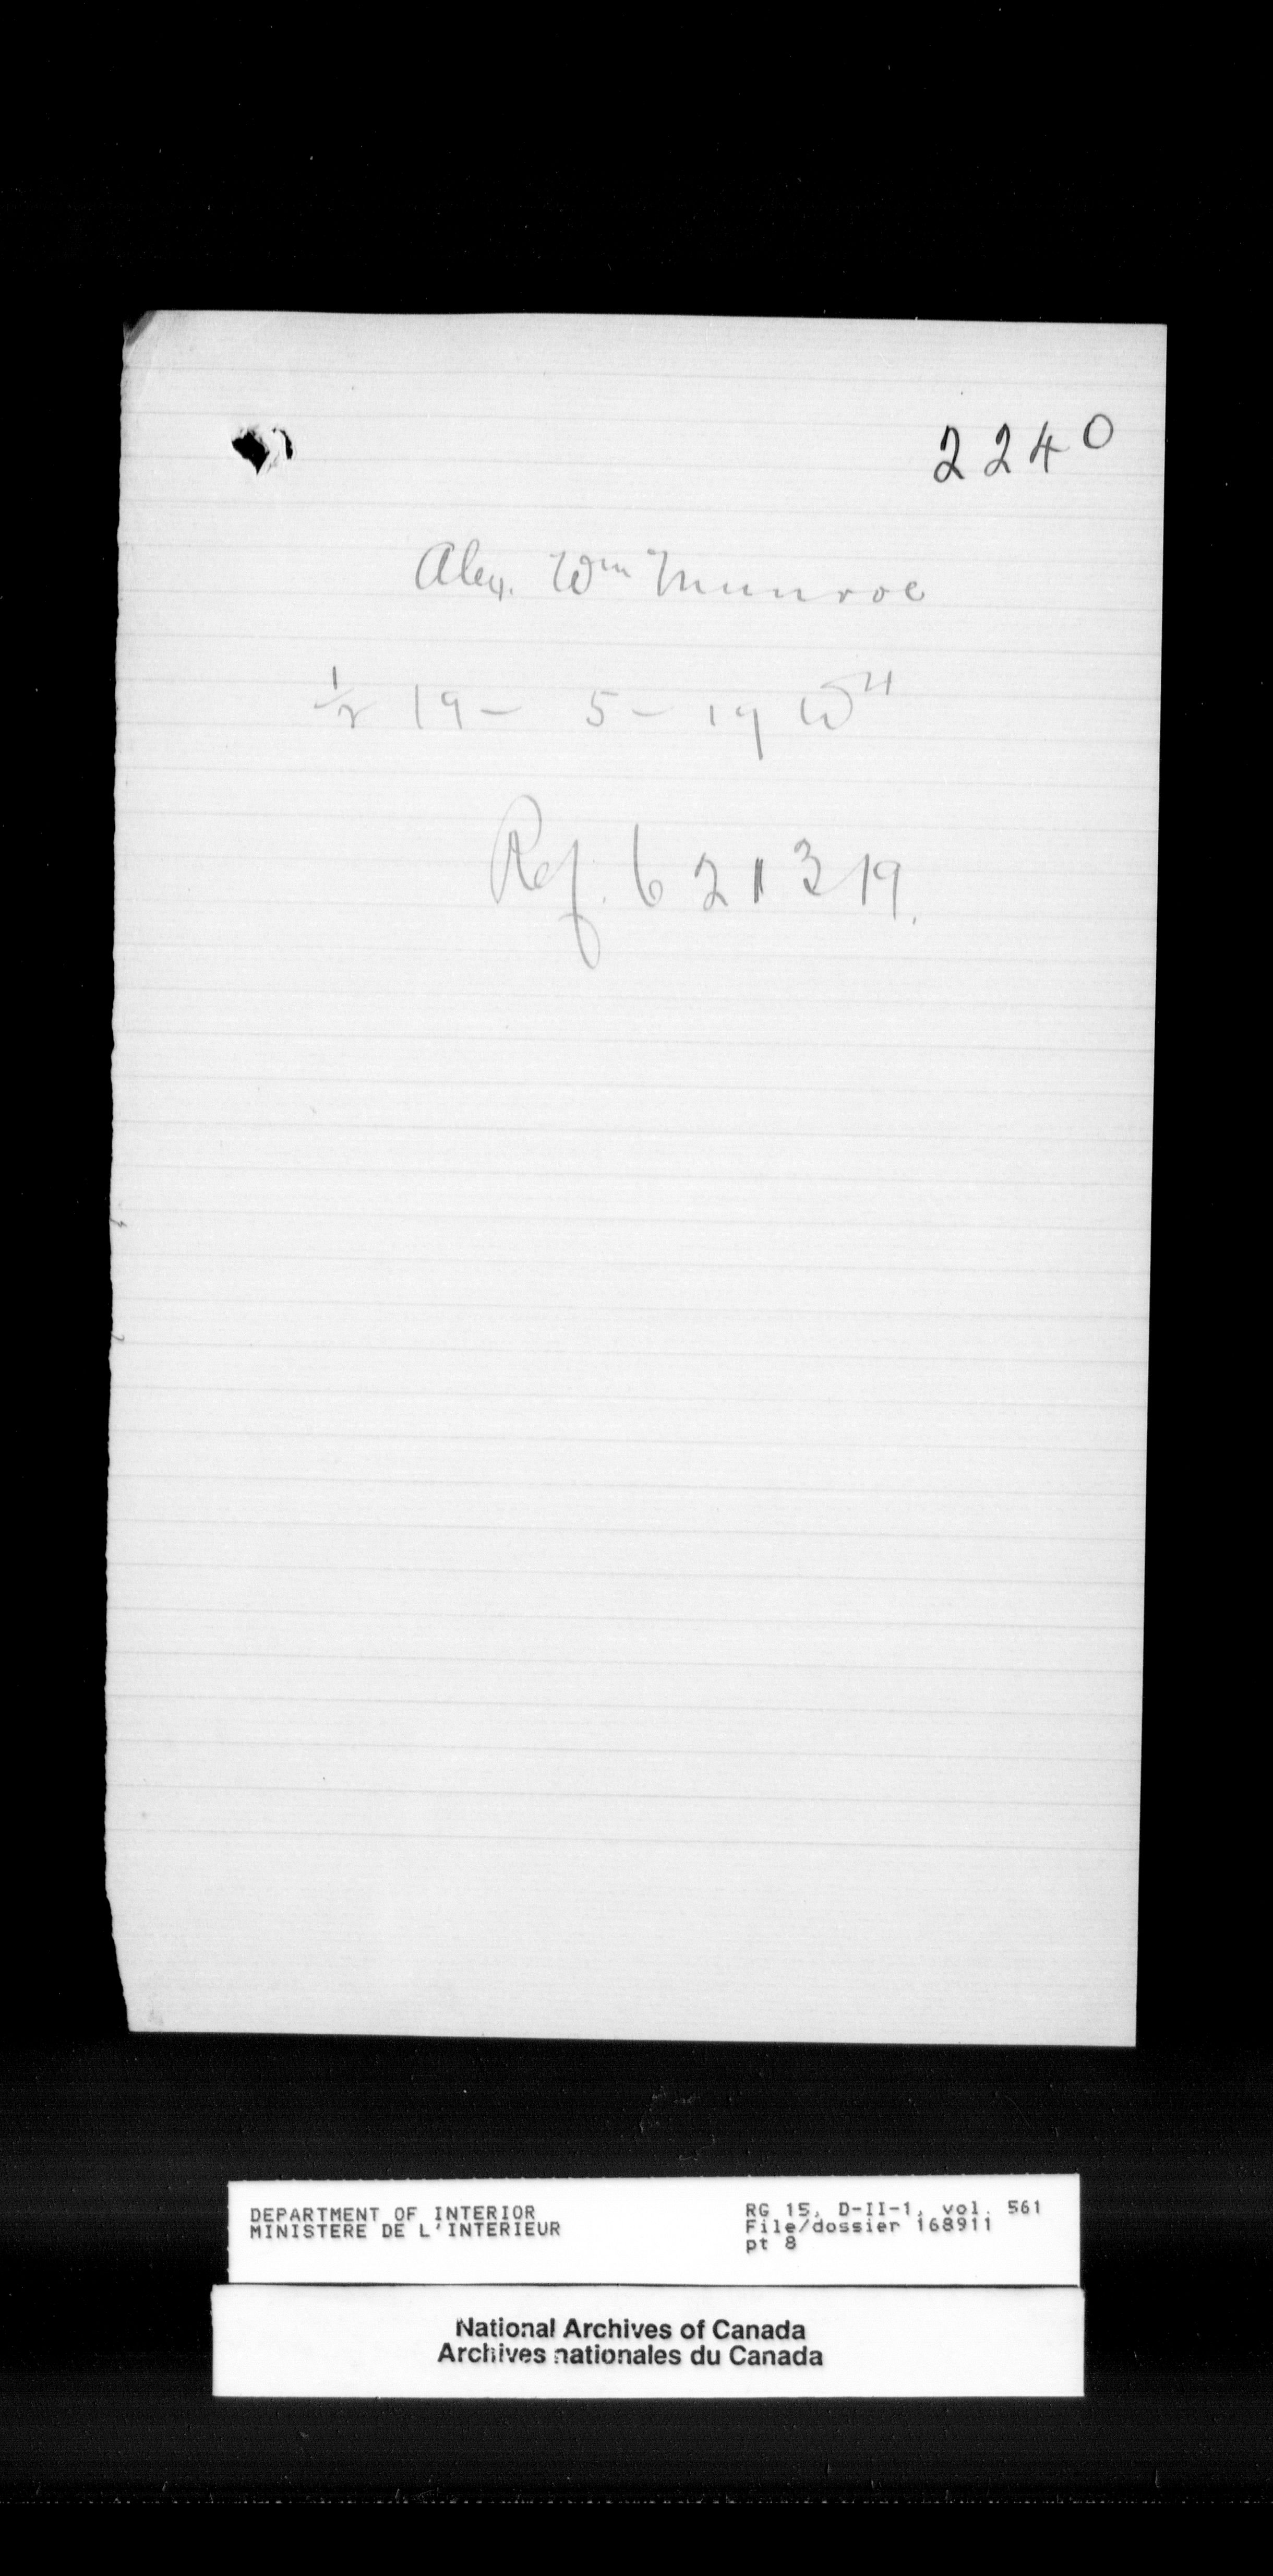 2240
Alex. Wm Munroe
1/2 19 - 5 - 19 W4
Ref. 621319.
DEPARTMENT OF INTERIOR
MINISTERE DE L'INTERIEUR
RG 15, D-II-1, vol. 561
File/dossier 168911
pt 8
National Archives of Canada
Archives nationales du Canada